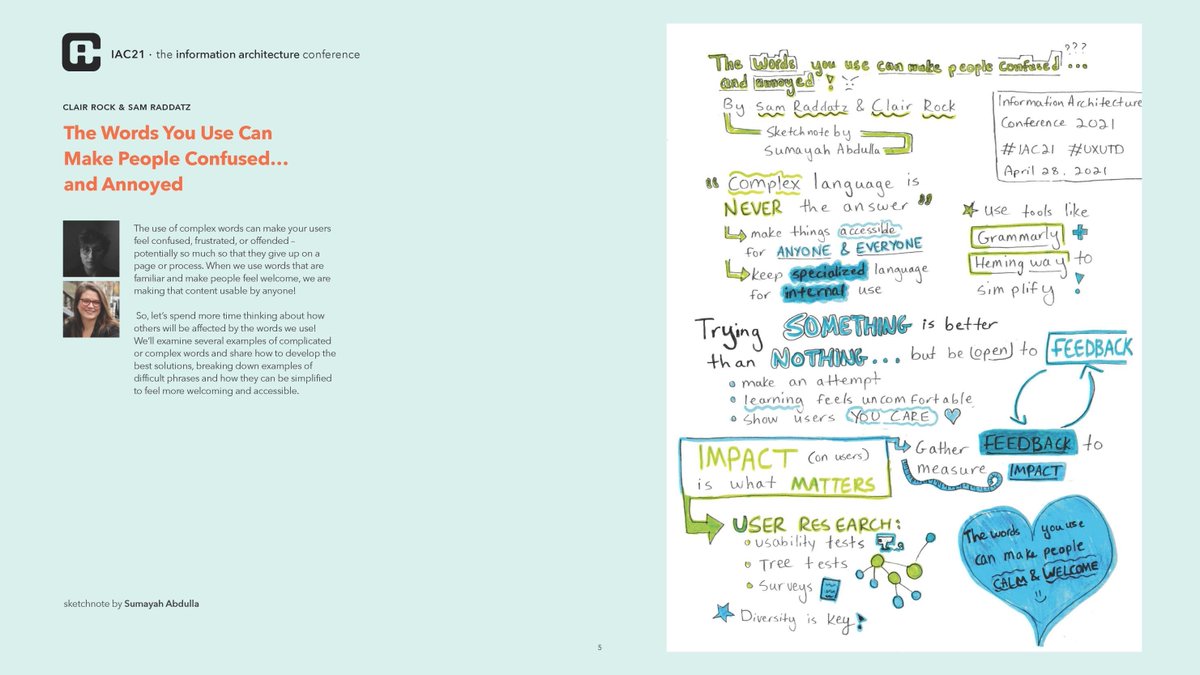 IAC21 · the information architecture conference
CLAIR ROCK & SAM RADDATZ
The Words You Use Can
Make People Confused…
and Annoyed
The use of complex words can make your users
feel confused, frustrated, or offended –
potentially so much so that they give up on a
page or process. When we use words that are
familiar and make people feel welcome, we are
making that content usable by anyone!
So, let's spend more time thinking about how
others will be affected by the words we use!
We'll examine several examples of complicated
or complex words and share how to develop the
best solutions, breaking down examples of
difficult phrases and how they can be simplified
to feel more welcoming and accessible.
sketchnote by Sumayah Abdulla
5
The Words you use can make people confused... ???
and annoyed!
By Sam Raddatz & Clair Rock
Sketchnote by
Sumayah Abdulla
Information Architecture
Conference 2021
#IAC21 #UXUTD
April 28, 2021
"Complex language is
NEVER the answer"
make things accessible
for ANYONE & EVERYONE
keep specialized language
for internal use
use tools like
Grammarly +
Hemingway to
simplify!
Trying SOMETHING is better
than NOTHING... but be (open) to FEEDBACK
make an attempt
learning feels uncomfortable
show users YOU CARE
IMPACT (on users)
is what MATTERS
Gather FEEDBACK to
measure IMPACT
USER RESEARCH:
usability tests
Tree tests
Surveys
Diversity is key!
The words you use
can make people
CALM & WELCOME